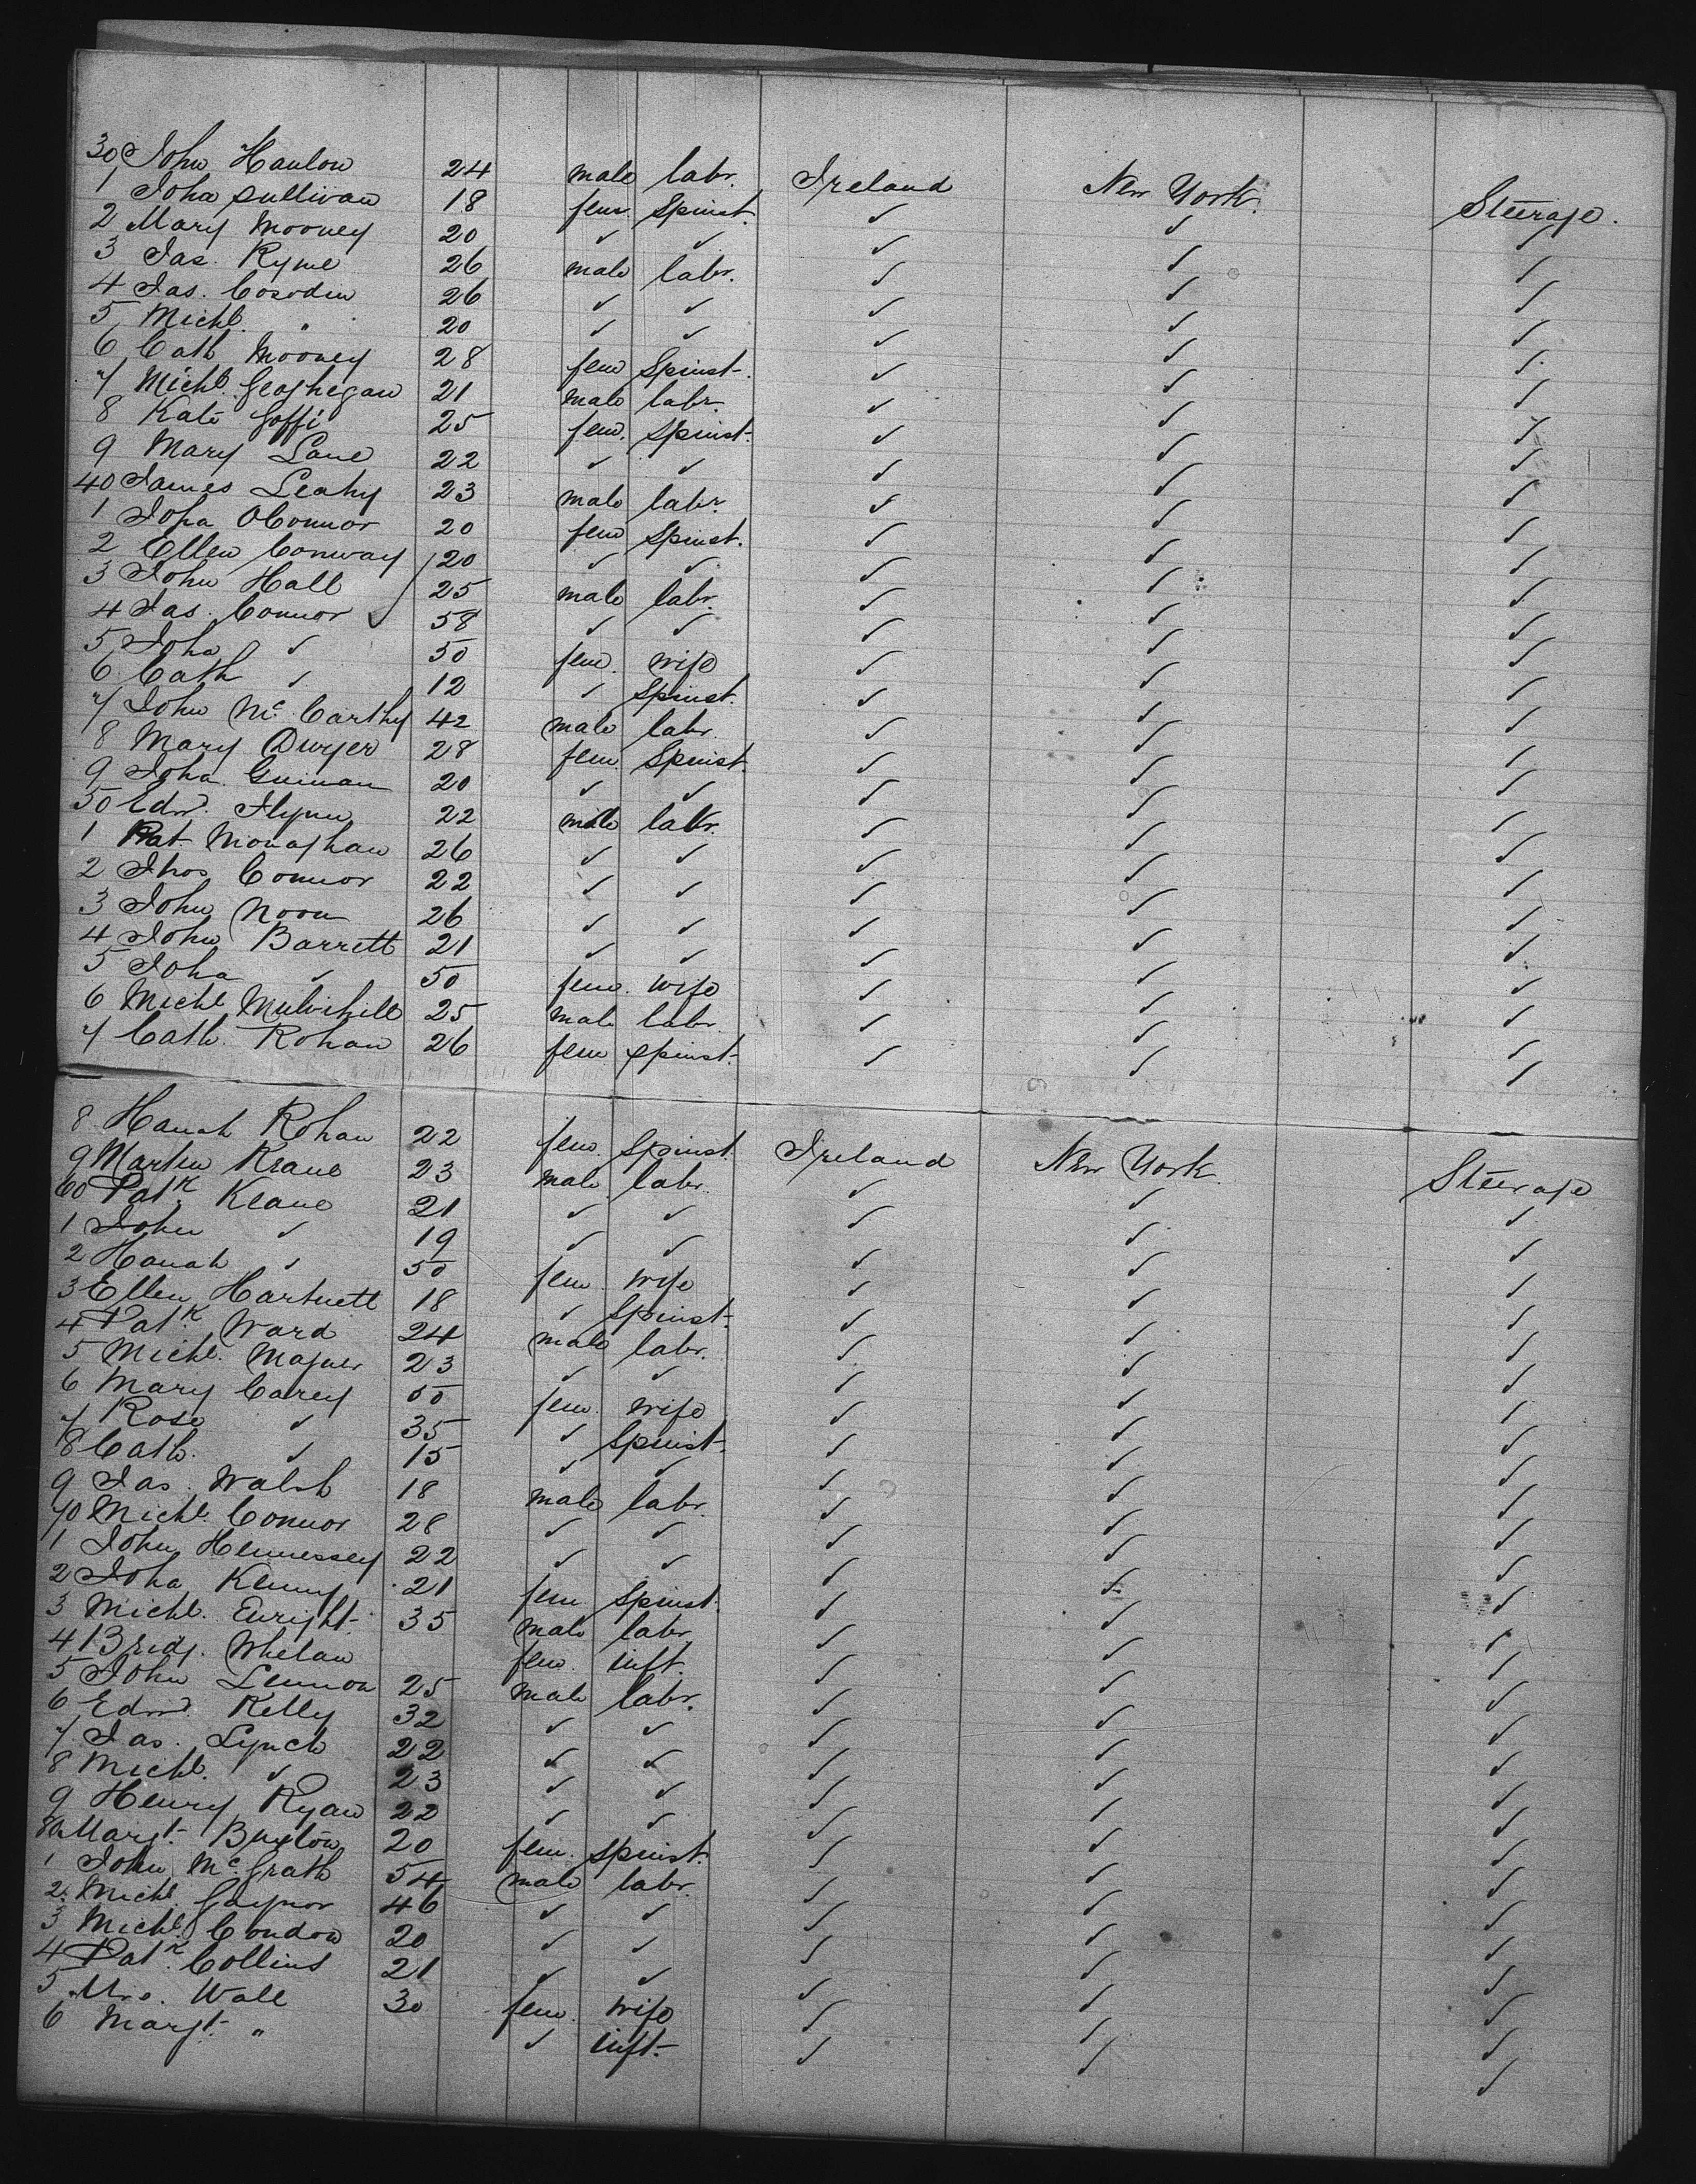 30 John Hanlon 24 male labr. Ireland New York. Steerage.
1 Joha Sullivan 18 fem. Spinst. ✓ ✓ ✓
2 Mary Mooney 20 ✓ ✓ ✓ ✓ ✓
3 Jas. Ryme 26 male labr. ✓ ✓ ✓
4 Jas. 26 ✓ ✓ ✓ ✓ ✓
5 Michl. " 20 ✓ ✓ ✓ ✓ ✓
6 Cath Mooney 28 fem Spinst. ✓ ✓ ✓
7 Michl. Geoghegan 21 male labr. ✓ ✓ ✓
8 Kate 25 fem. Spinst. ✓ ✓ ✓
9 Mary Lane 22 ✓ ✓ ✓ ✓ ✓
40 James Leahy 23 male labr. ✓ ✓ ✓
1 Joha OConnor 20 fem Spinst. ✓ ✓ ✓
2 Ellen Conway 20 ✓ ✓ ✓ ✓ ✓
3 John Hall 25 male labr. ✓ ✓ ✓
4 Jas. Connor 58 ✓ ✓ ✓ ✓ ✓
5 Joha ✓ 50 fem. wife ✓ ✓ ✓
6 Cath ✓ 12 ✓ Spinst. ✓ ✓ ✓
7 John Mc Carthy 42 male labr. ✓ ✓ ✓
8 Mary Dwyer 28 fem. Spinst. ✓ ✓ ✓
9 Joha Guinan 20 ✓ ✓ ✓ ✓ ✓
50 Edwd. Flynn 22 male labr. ✓ ✓ ✓
1 Pat Monaghan 26 ✓ ✓ ✓ ✓ ✓
2 Thos Connor 22 ✓ ✓ ✓ ✓ ✓
3 John Noon 26 ✓ ✓ ✓ ✓ ✓
4 John Barrett 21 ✓ ✓ ✓ ✓ ✓
5 Joha ✓ 50 fem. wife ✓ ✓ ✓
6 Michl Mulvihill 25 male labr. ✓ ✓ ✓
7 Cath. Rohan 26 fem spinst. ✓ ✓ ✓
8 Hanah Rohan 22 fem. Spinst. Ireland New York. Steerage
9 Martin Keane 23 male labr. ✓ ✓ ✓
60 Patk. Keane 21 ✓ ✓ ✓ ✓ ✓
1 John ✓ 19 ✓ ✓ ✓ ✓ ✓
2 Hanah ✓ 50 fem. wife ✓ ✓ ✓
3 Ellen Hartnett 18 ✓ Spinst. ✓ ✓ ✓
4 Patk. Ward 24 male labr. ✓ ✓ ✓
5 Michl. Magner 23 ✓ ✓ ✓ ✓ ✓
6 Mary Carey 55 fem. wife ✓ ✓ ✓
7 Rose ✓ 35 ✓ Spinst. ✓ ✓ ✓
8 Cath. ✓ 15 ✓ ✓ ✓ ✓ ✓
9 Jas. Walsh 18 male labr. ✓ ✓ ✓
70 Michl. Connor 28 ✓ ✓ ✓ ✓ ✓
1 John Hennessey 22 ✓ ✓ ✓ ✓ ✓
2 Joha Kenny 21 fem Spinst. ✓ ✓ ✓
3 Michl. Enright. 35 male labr. ✓ ✓ ✓
4 Bridg. Whelan fem. inft. ✓ ✓ ✓
5 John Lennon 25 male labr. ✓ ✓ ✓
6 Edwd. Kelly 32 ✓ ✓ ✓ ✓ ✓
7 Jas. Lynch 22 ✓ ✓ ✓ ✓ ✓
8 Michl. ✓ 23 ✓ ✓ ✓ ✓ ✓
9 Henry Ryan 22 ✓ ✓ ✓ ✓ ✓
80 Margt. 20 fem. spinst. ✓ ✓ ✓
1 John Mc Grath 54 male labr. ✓ ✓ ✓
2 Michl. Gaynor 46 ✓ ✓ ✓ ✓ ✓
3 Michl. Condon 20 ✓ ✓ ✓ ✓ ✓
4 Patk. Collins 21 ✓ ✓ ✓ ✓ ✓
5 Mrs. Wall 30 fem. wife ✓ ✓ ✓
6 Margt. " ✓ inft. ✓ ✓ ✓